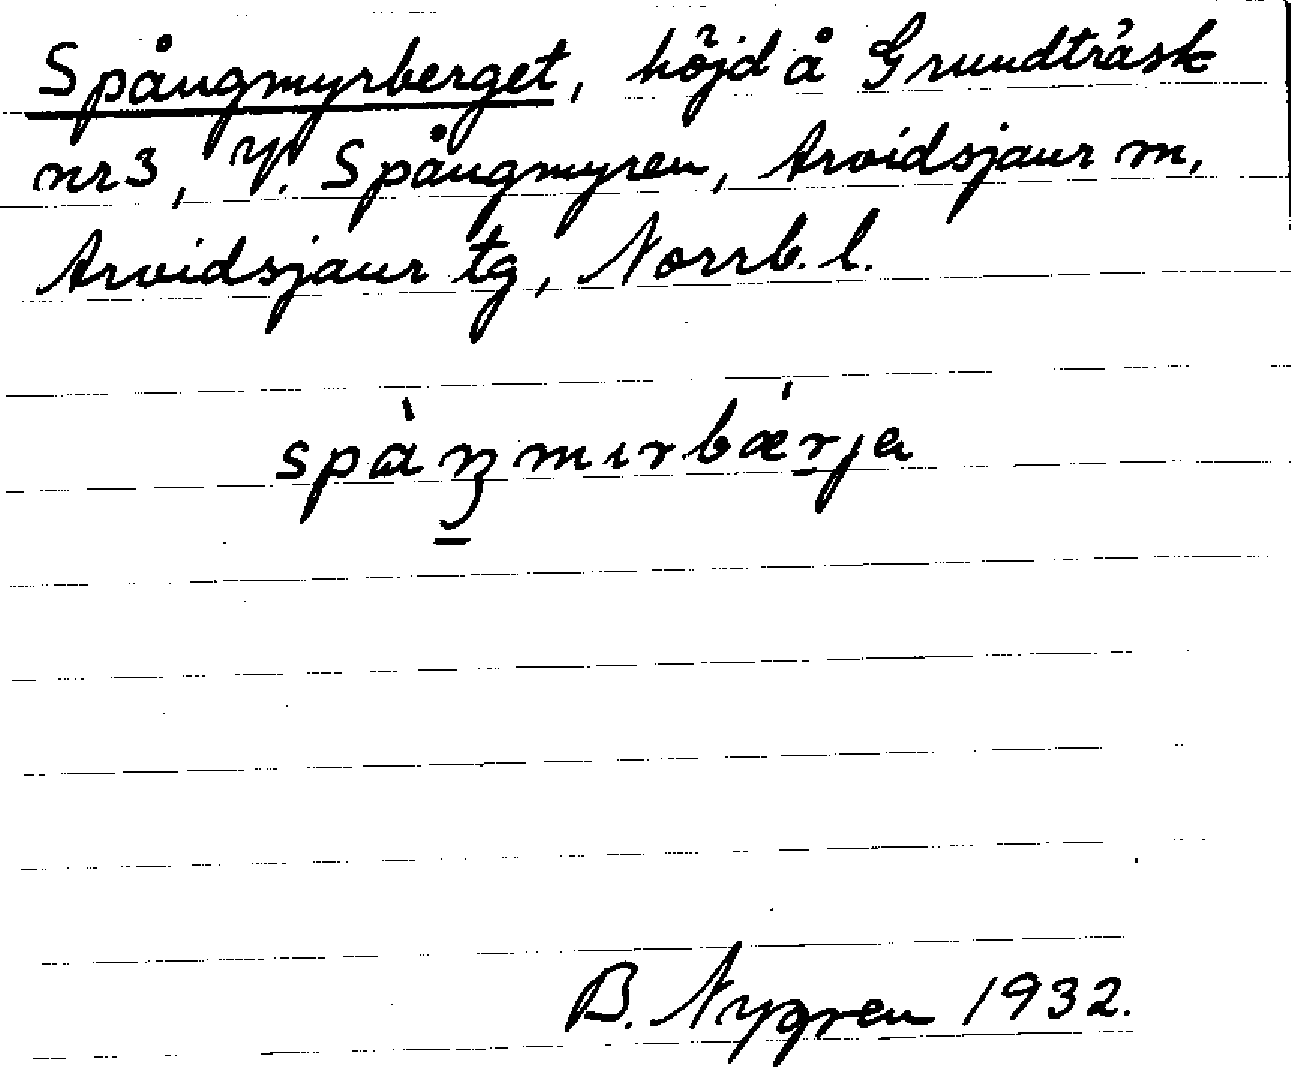 Spångmyrberget, höjd å Grundträsk
nr 3, V. Spångmyren, Arvidsjaur m,
Arvidsjaur tg, Norrb. l.
B. Nygren 1932.